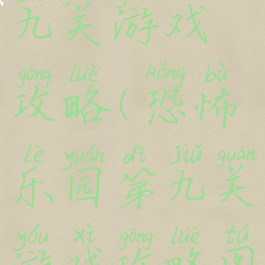 九关游戏
gōng lüè kǒng bù
攻略(恐怖
lè yuán dì jiǔ guān
乐园第九关
yóu xì gōng lüè tú
游戏攻略图